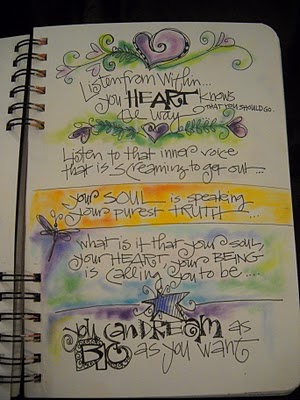 Listen from within...
you HEART knows
THAT YOU SHOULD GO.
the way
Listen to that inner voice
that is screaming to get out...
your SOUL is speaking
your purest TRUTH ....
what is it that your soul,
your HEART, your BEING
is calling you to be ....
you can DREAM as
BIG as you want